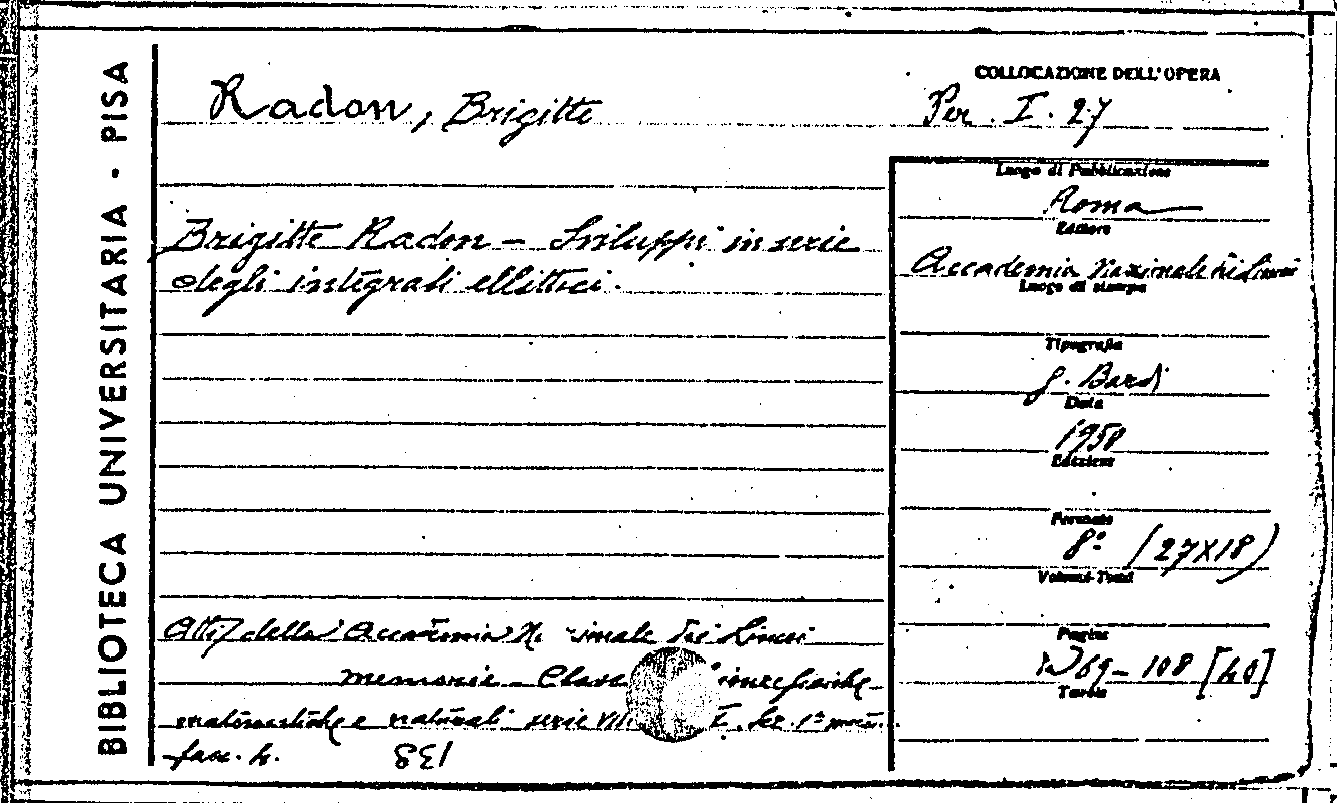 BIBLIOTECA UNIVERSITARIA - PISA
Radon, Brigitte
Brigitte Radon - Sviluppi in serie
degli integrali ellittici.
Atti della Accademia dei Lincei
memorie - Classe
matematiche e naturali serie VIII I. Sez. 1ª
fasc. 4. 138
COLLOCAZIONE DELL'OPERA
Per. I. 27
Luogo di Pubblicazione
Roma
Editore
Accademia Nazionale dei Lincei
Luogo di stampa
Tipografia
G. Bardi
Data
1958
Edizione
Formato
8º (27X18)
Volumi-Tomi
Pagine
69-108 [40]
Tavole